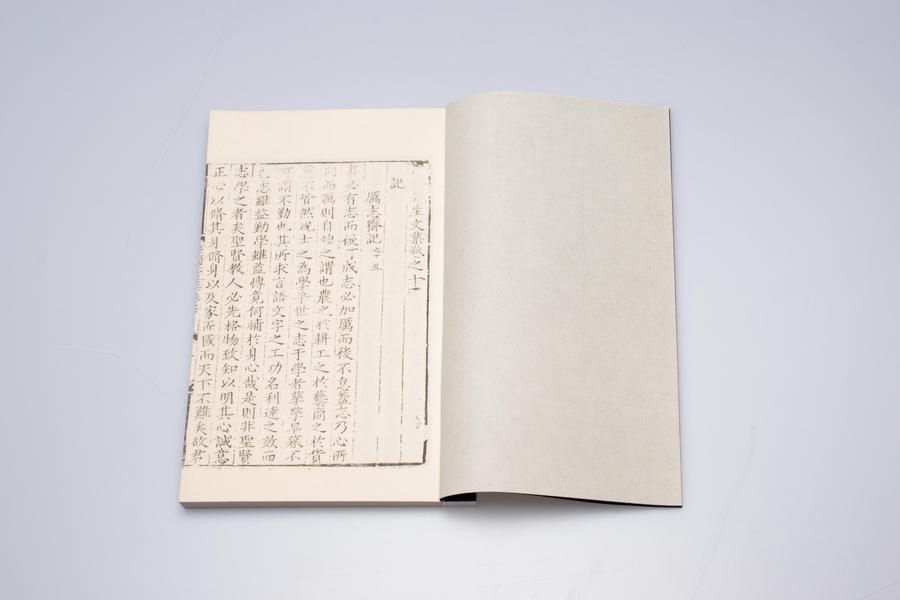 生文集卷之十一
記
厲志齋記
必有志而後可成志必加厲而後不怠蓋志乃心所
而厲則自强之謂也農之於耕工之於藝商之於貨
不皆然况士之為學乎世之志于學者孳孳早暮不
可謂不勤也其所求言語文字之工功名利達之效而
已志雖益勤學雖益博竟何補於身心哉是則非聖賢
志學之者矣聖賢教人必先格物致知以明其心誠意
正心以脩其身脩身以及家而國而天下不難矣故君